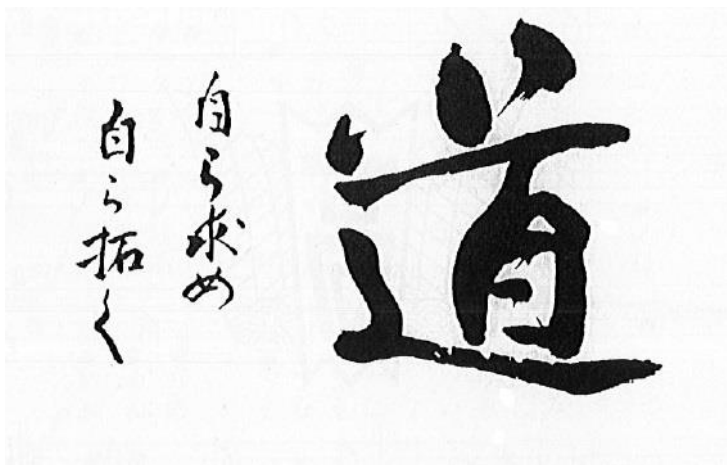 道
自ら求め
自ら拓く